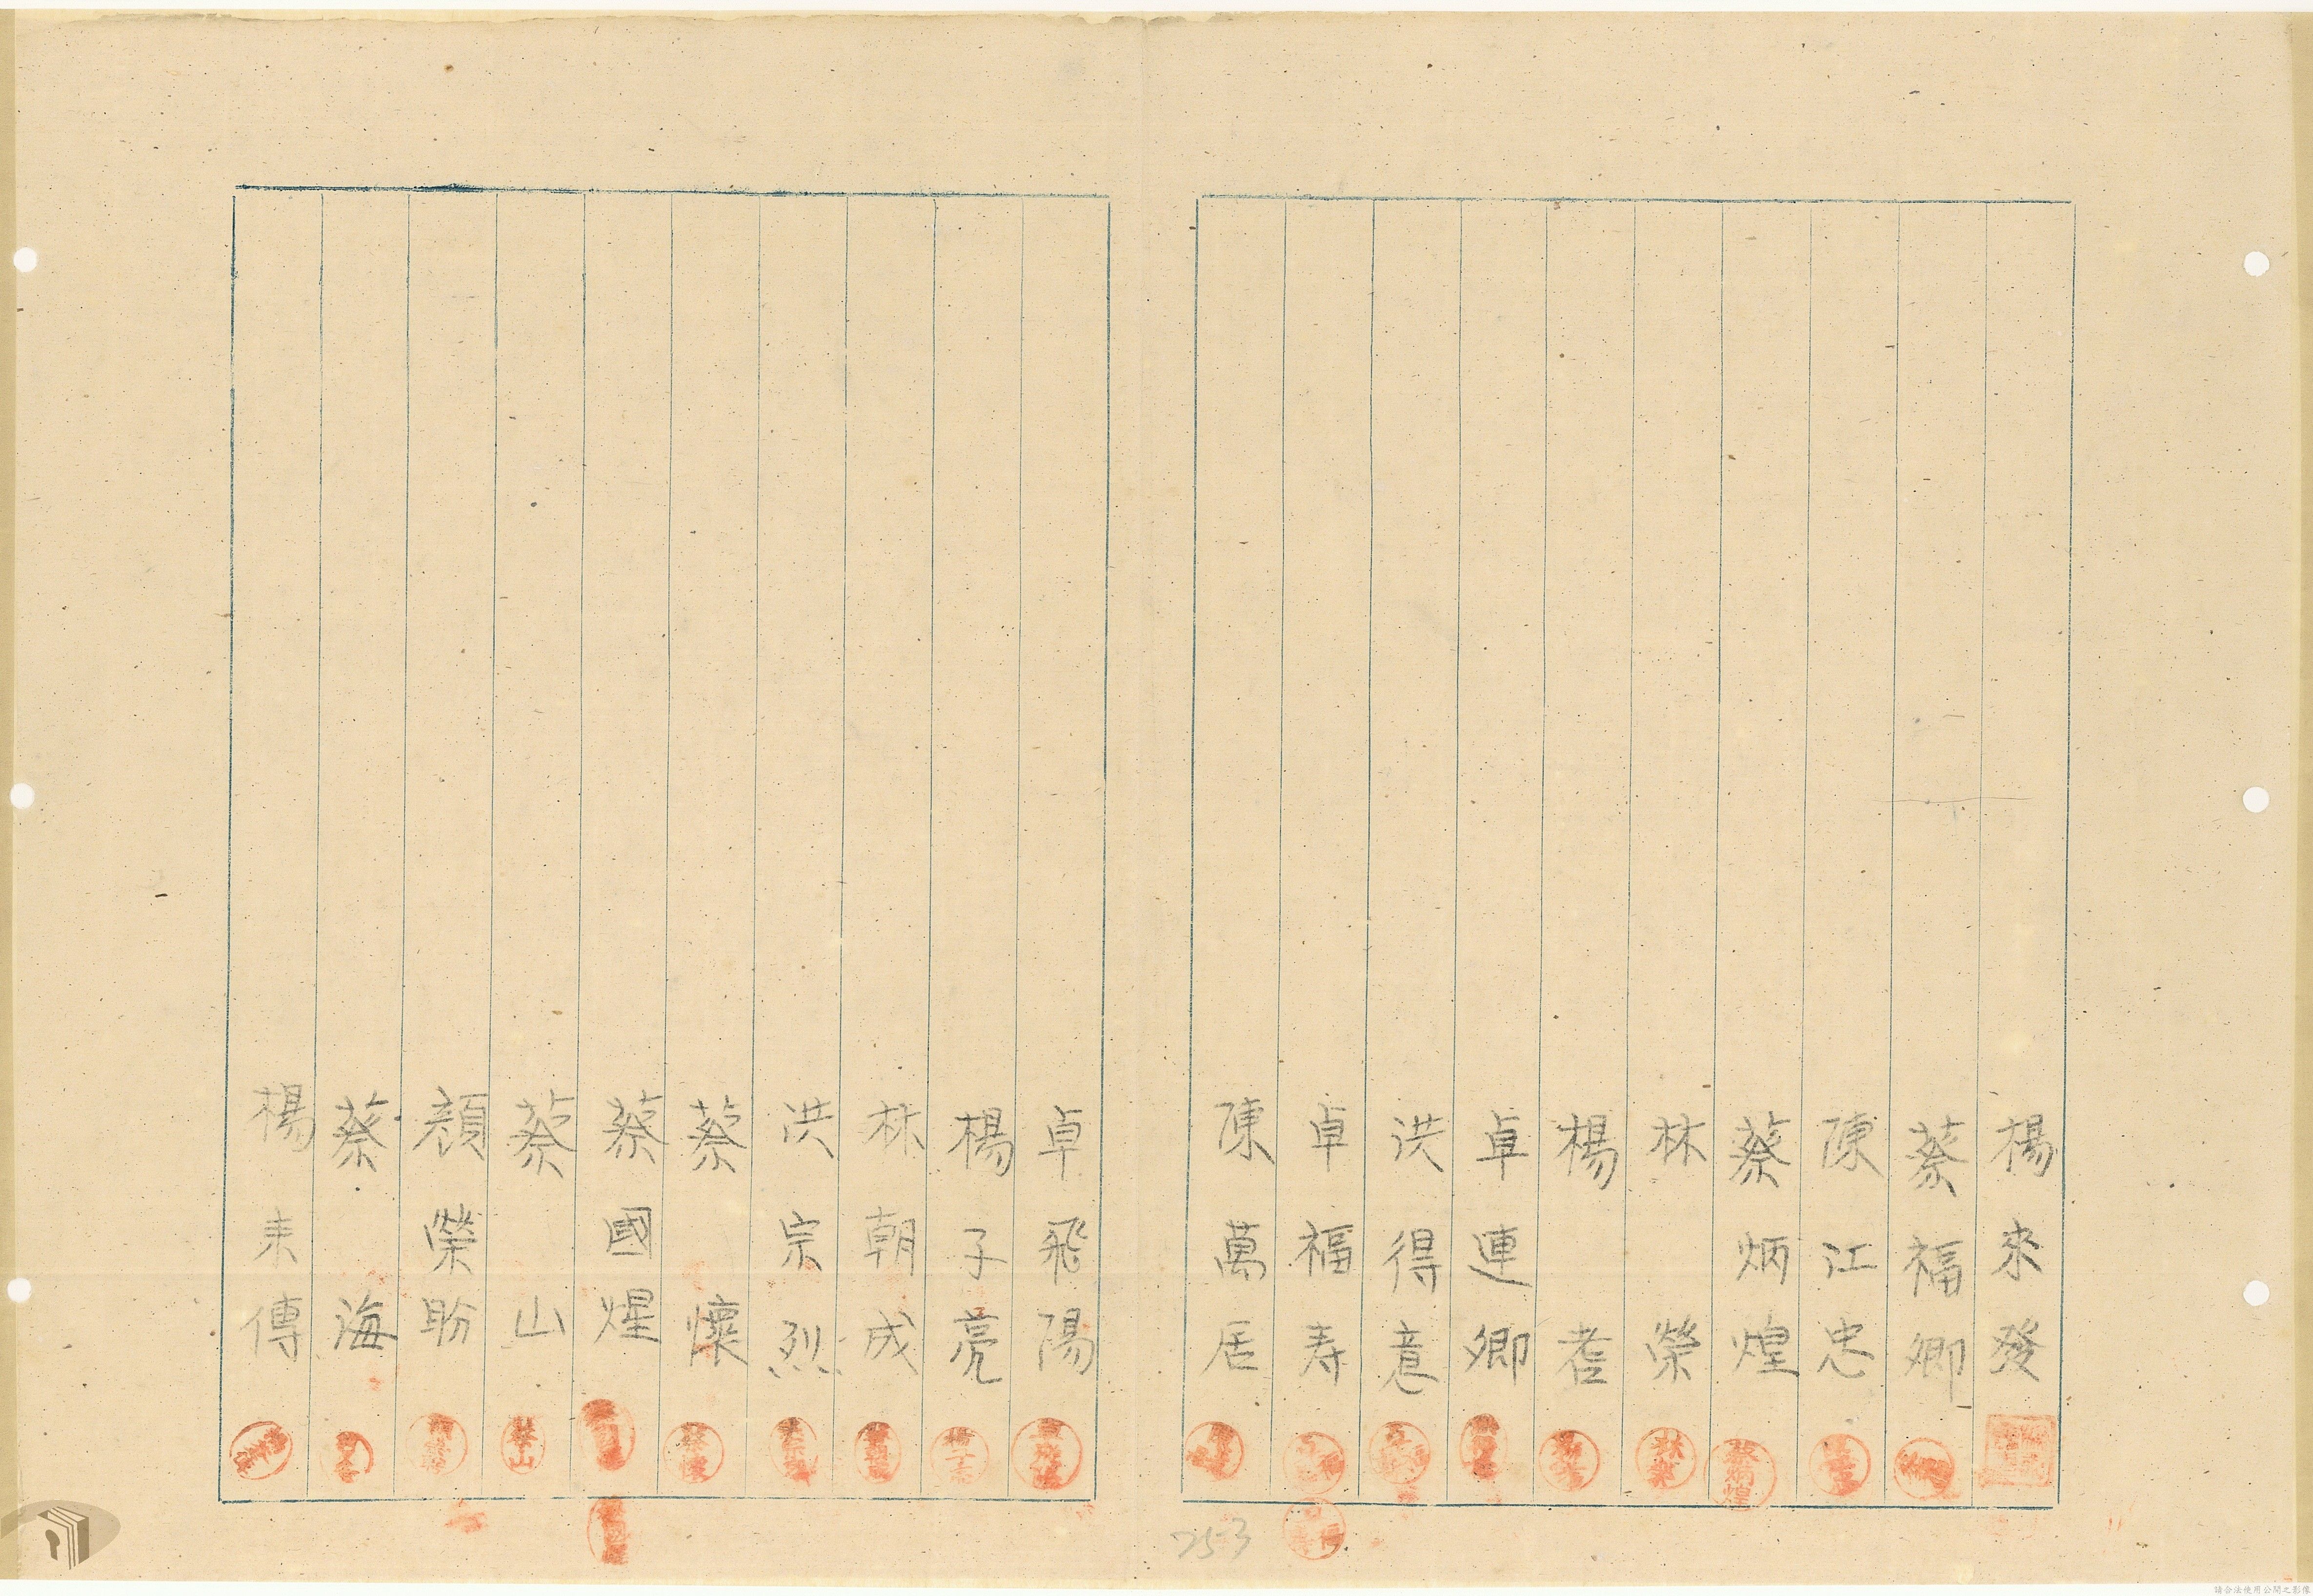 楊來發
蔡福卿
陳江忠
蔡炳煌
林榮
楊耆
卓連卿
洪得意
卓福寿
陳萬居
卓飛陽
楊子亮
林朝成
洪宗烈
蔡懷
蔡國煋
蔡山
顏榮盼
蔡海
楊耒傳
253
請合法使用公開之影像